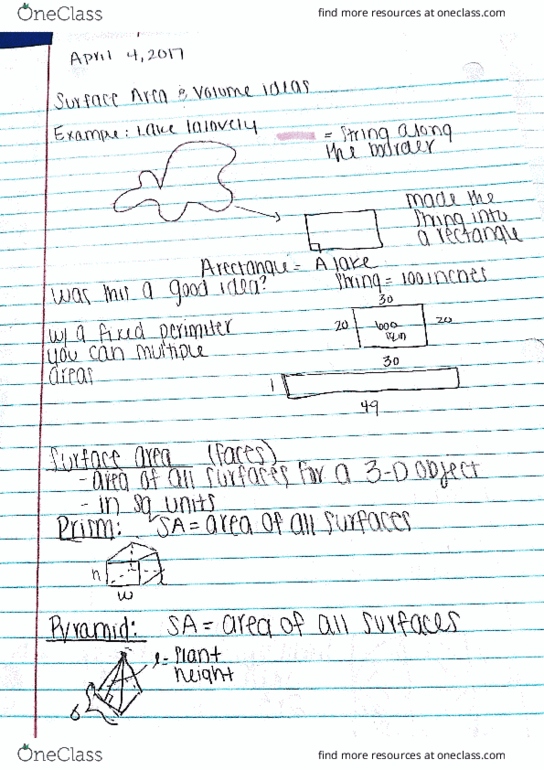 OneClass
find more resources at oneclass.com
April 4, 2017
Surface Area & Volume ideas
Example: Lake lalovely = String along
the border
made the
string into
a rectangle
A rectangle = A lake
was this a good idea? String = 100 inches
30
w/ a fixed perimeter 20 600 20
you can multiple
30
areas
1
49
Surface area (faces)
- area of all surfaces for a 3-D object
- in sq units
Prism: SA = area of all surfaces
h
l
w
Pyramid: SA = area of all surfaces
l = plant
height
b
OneClass
find more resources at oneclass.com